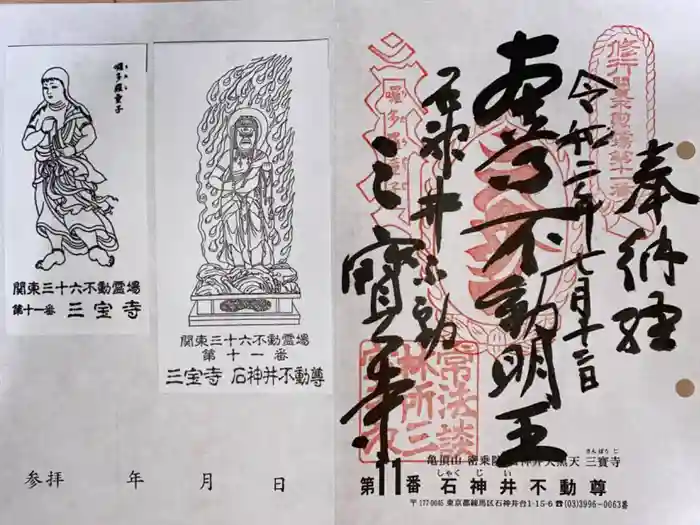 囉多羅童子
関東三十六不動霊場
第十一番 三宝寺
関東三十六不動霊場
第十一番
三宝寺 石神井不動尊
参拝 年 月 日
奉納経
令和二年七月十二日
本尊不動明王
石神井不動
三寶寺
第十一番
囉多羅童子
常法談
林所三
亀頂山 密乗院 石神井大黒天 三寶寺
さんぽうじ
しゃくじい
第11番 石神井不動尊
〒177-0045 東京都練馬区石神井台1-15-6 ☎(03)3996-0063番